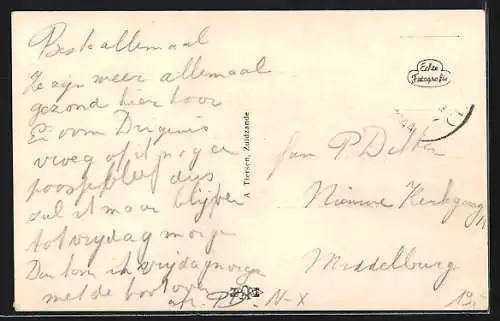 Beste allemaal
Ze zyn weer allemaal
gezond hier hoor
En oom
vroeg of it nog een
poosje bleef dus
zal it maar blijven
tot vrydag morge
Dan kom ik vrydagmorge
met de boot over
A Thersen, Zuidzande
Echte
Fotografie
fam P. Dekker
Nieuwe Kerkgang
Middelburg